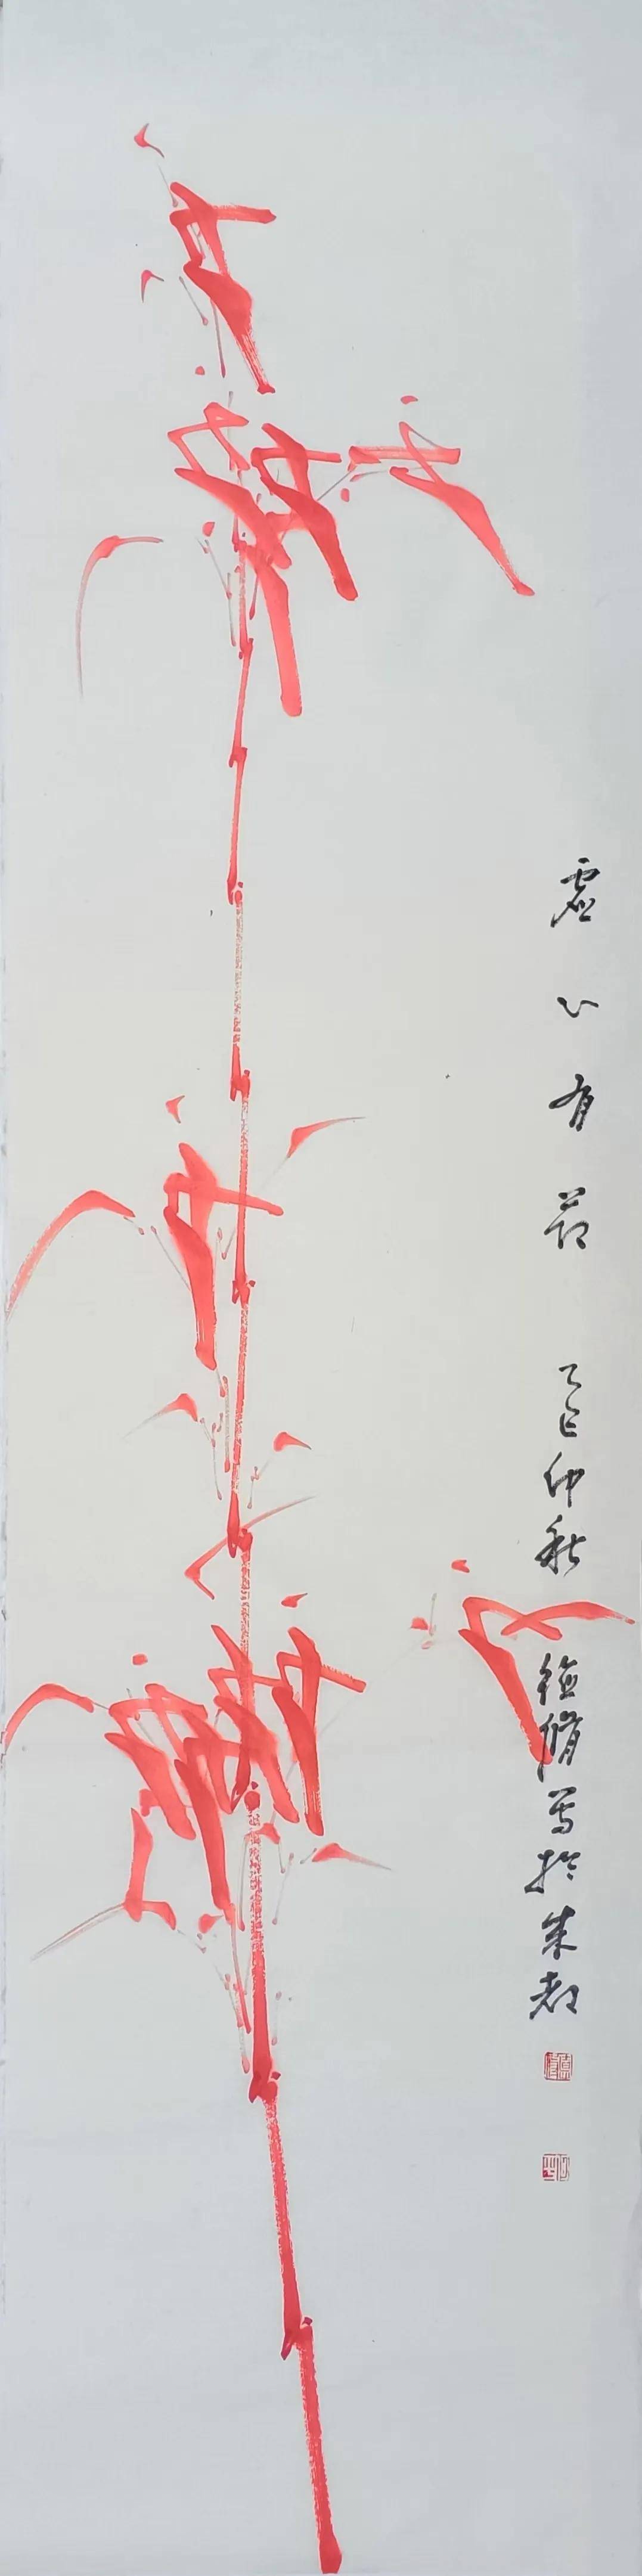 虚心有节 乙巳仲秋 德修写於朱都